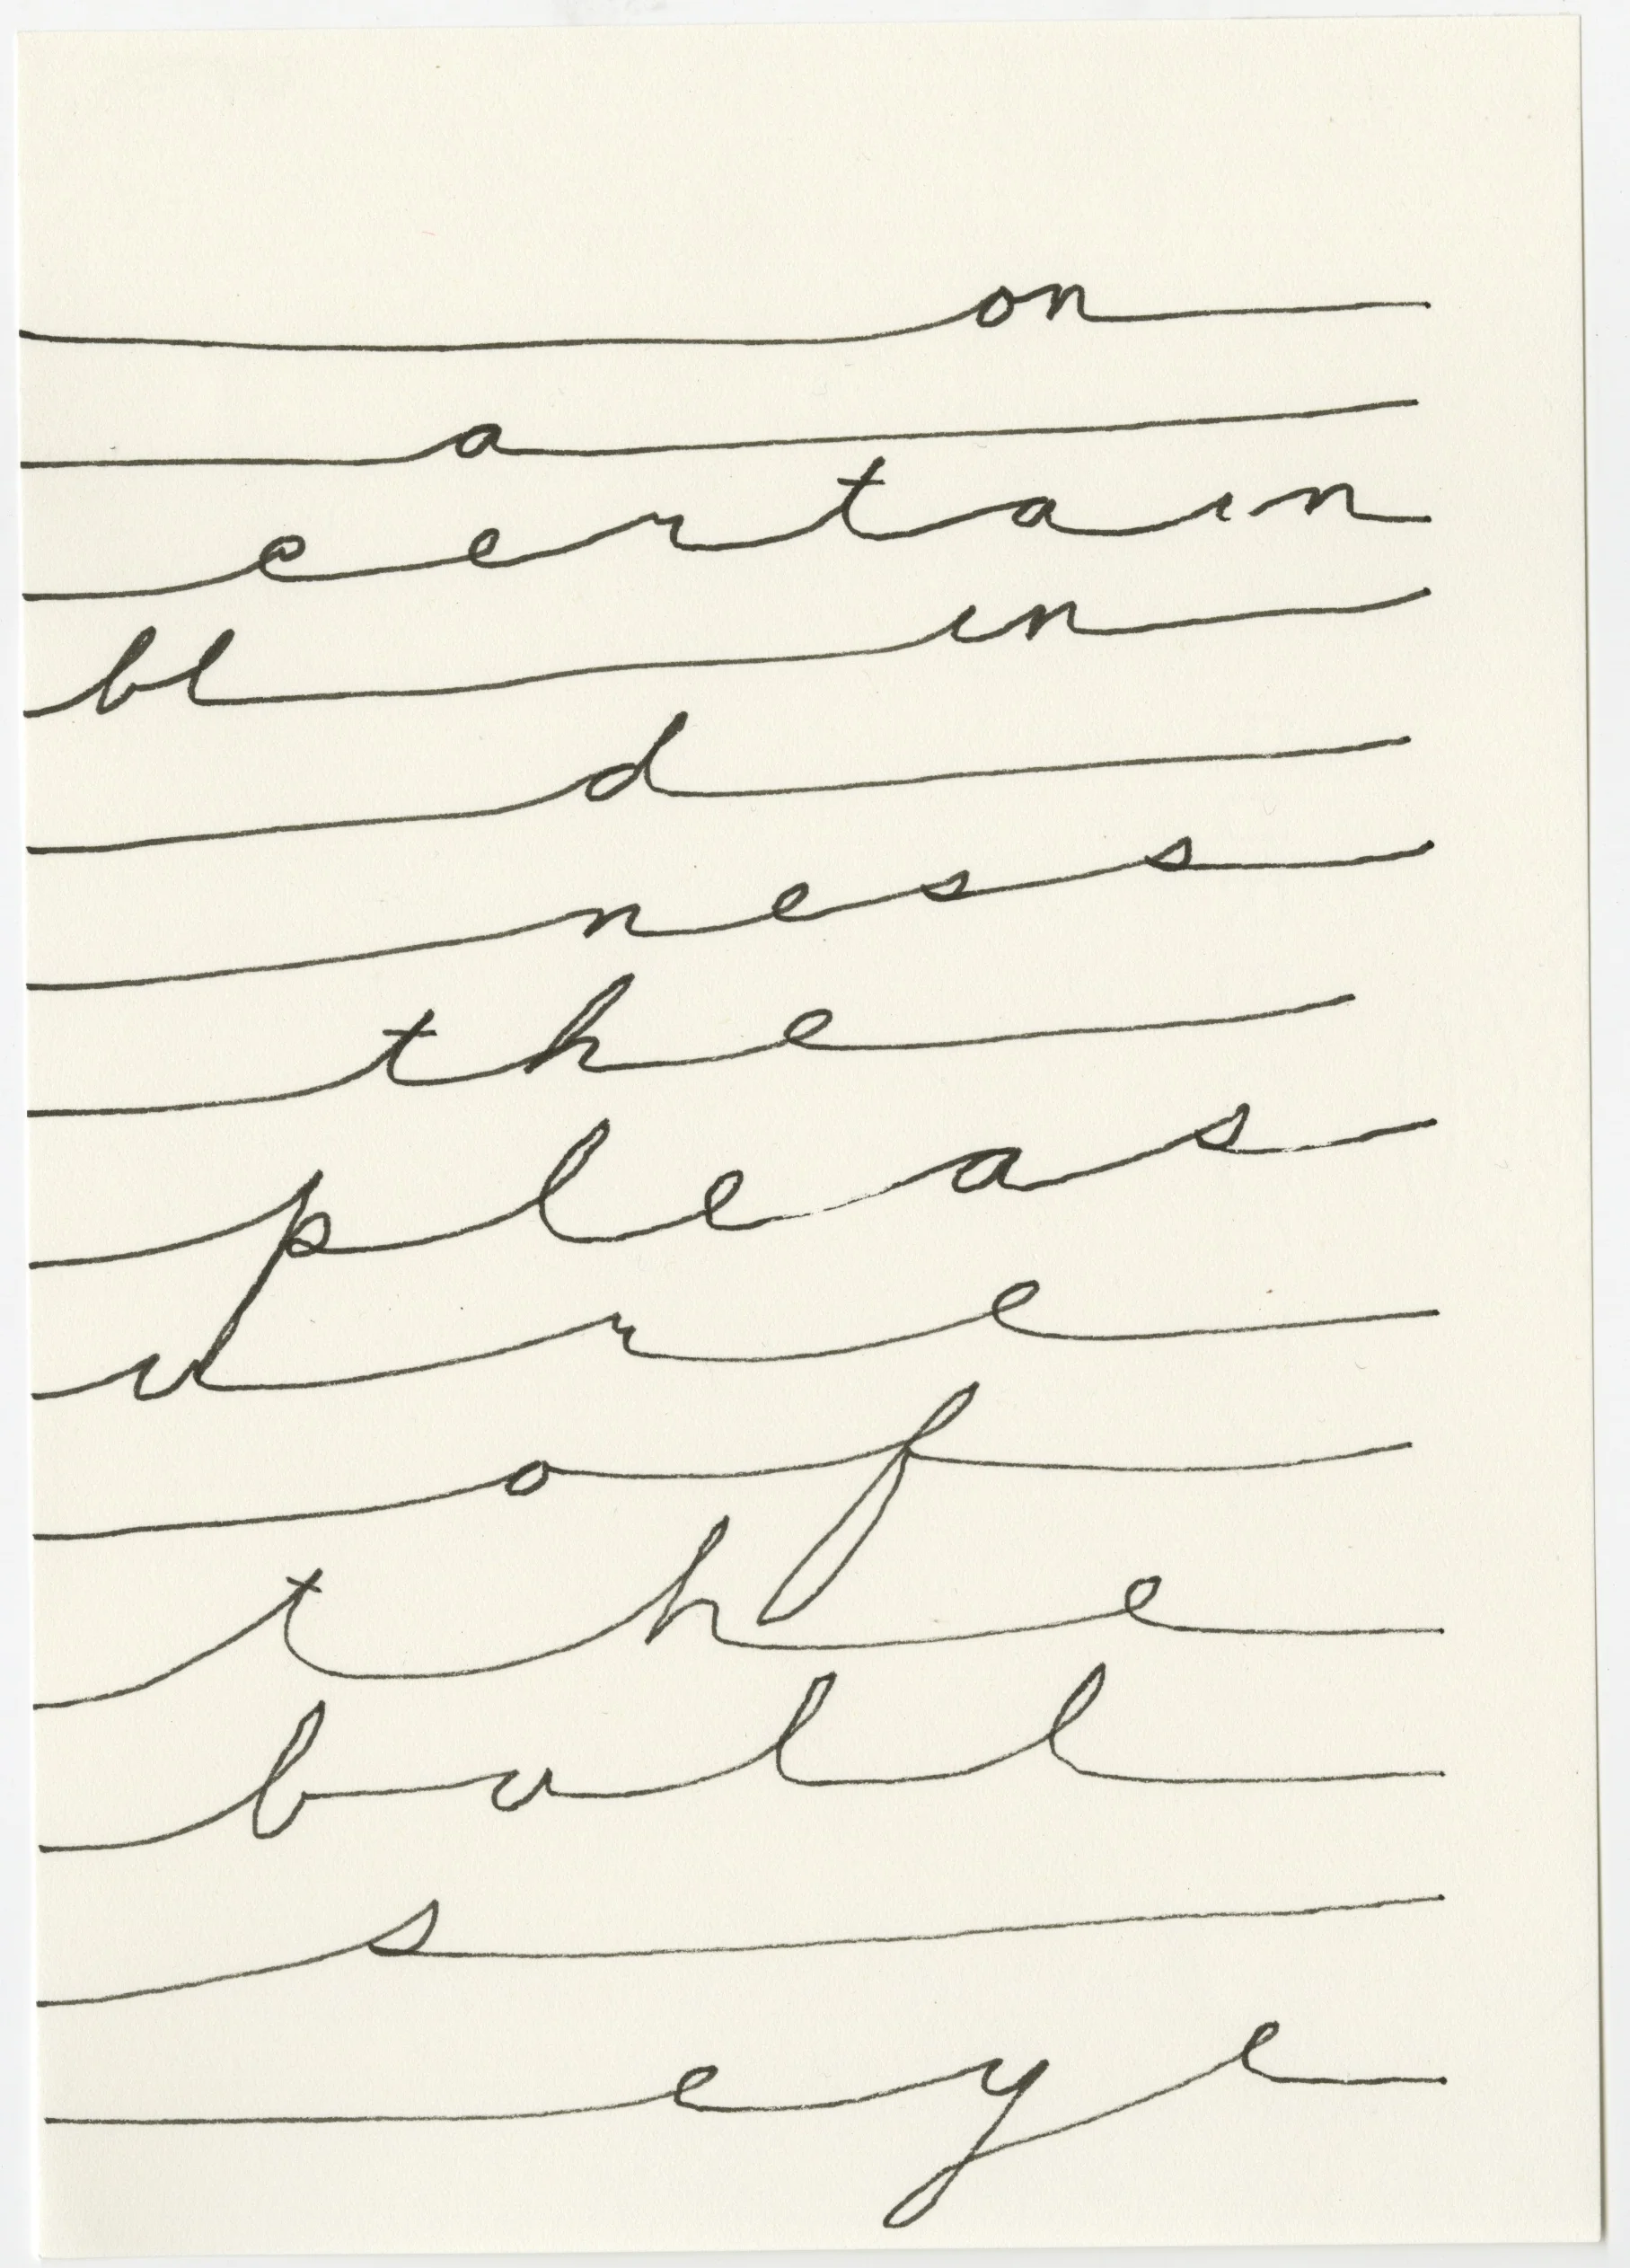 on
a
certain
bl in
d
ness
the
pleas
ure
of
the
bull
s
eye